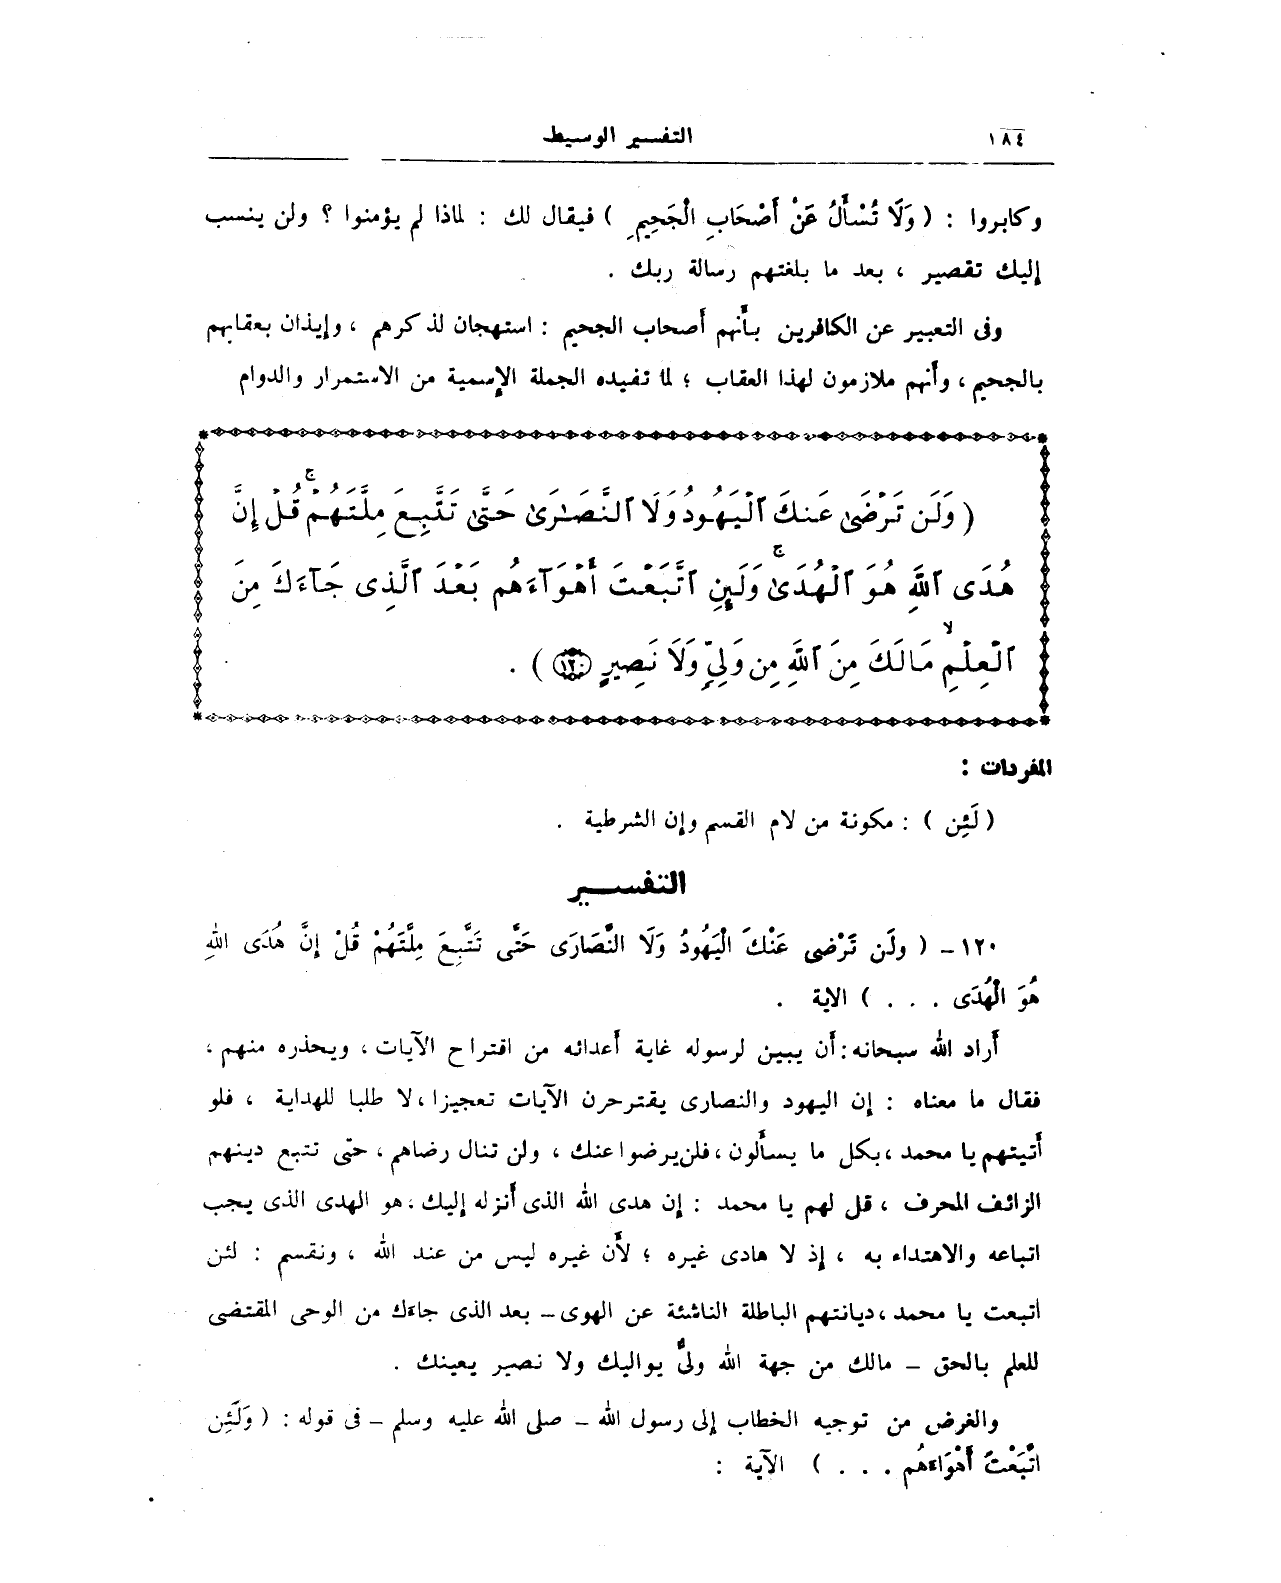 ١٨٤ التفسير الوسيط
وكابروا : ( وَلَا تُسْأَلُ عَنْ أَصْحَابِ الْجَحِيمِ ) فيقال لك : لماذا لم يؤمنوا ؟ ولن ينسب
إليك تقصير ، بعد ما بلغتهم رسالة ربك .
وفى التعبير عن الكافرين بأنهم أصحاب الجحيم : استهجان لذكرهم ، وإيذان بعقابهم
بالجحيم ، وأنهم ملازمون لهذا العقاب ؛ لما تفيده الجملة الإسمية من الاستمرار والدوام
( وَلَن تَرْضَىٰ عَنكَ ٱلْيَهُودُ وَلَا ٱلنَّصَـٰرَىٰ حَتَّىٰ تَتَّبِعَ مِلَّتَهُمْ ۚ قُلْ إِنَّ
هُدَى ٱللَّهِ هُوَ ٱلْهُدَىٰ ۗ وَلَئِنِ ٱتَّبَعْتَ أَهْوَآءَهُم بَعْدَ ٱلَّذِى جَآءَكَ مِنَ
ٱلْعِلْمِ ۙ مَا لَكَ مِنَ ٱللَّهِ مِن وَلِىٍّ وَلَا نَصِيرٍ ١٢٠ ) .
المفردات :
( لَئِن ) : مكونة من لام القسم وإن الشرطية .
التفسير
١٢٠ – ( ولَن تَرْضى عَنْكَ الْيَهُودُ وَلَا النَّصَارَى حَتَّى تَتَّبِعَ مِلَّتَهُمْ قُلْ إِنَّ هُدَى اللهِ
هُوَ الْهُدَى . . . ) الاية .
أراد الله سبحانه : أن يبين لرسوله غاية أعدائه من اقتراح الآيات ، ويحذره منهم ،
فقال ما معناه : إن اليهود والنصارى يقترحرن الآيات تعجيزا ، لا طلبا للهداية ، فلو
أتيتهم يا محمد ، بكل ما يسألون ، فلن يرضوا عنك ، ولن تنال رضاهم ، حتى تتبع دينهم
الزائف المحرف ، قل لهم يا محمد : إن هدى الله الذى أنزله إليك . هو الهدى الذى يجب
اتباعه والاهتداء به ، إذ لا هادى غيره ؛ لأن غيره ليس من عند الله ، ونقسم : لئن
اتبعت يا محمد ، ديانتهم الباطلة الناشئة عن الهوى – بعد الذى جاءك من الوحى المقتضى
للعلم بالحق – مالك من جهة الله ولىٌّ يواليك ولا نصير يعينك .
والغرض من توجيه الخطاب إلى رسول الله – صلى الله عليه وسلم – فى قوله : ( وَلَئِن
اتَّبَعْتَ أَهْوَاءَهُم . . . ) الآية :